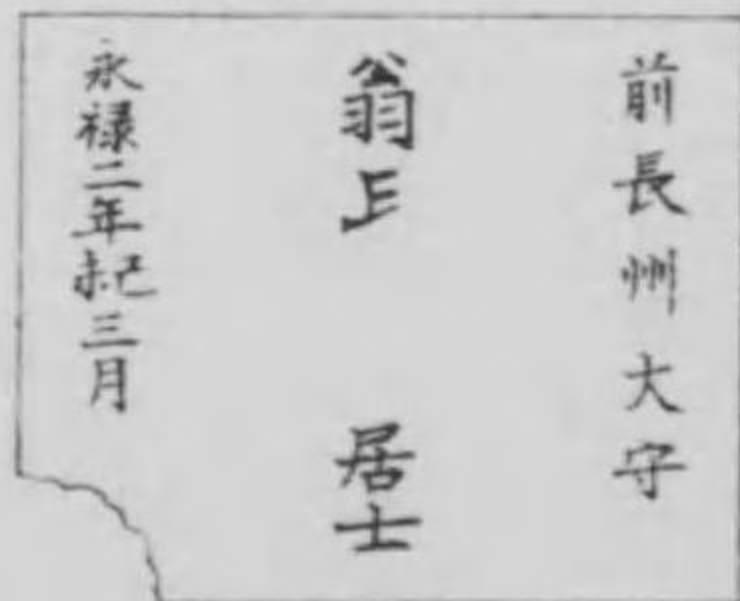 前長州大守
翁 居士
永禄二年己未三月